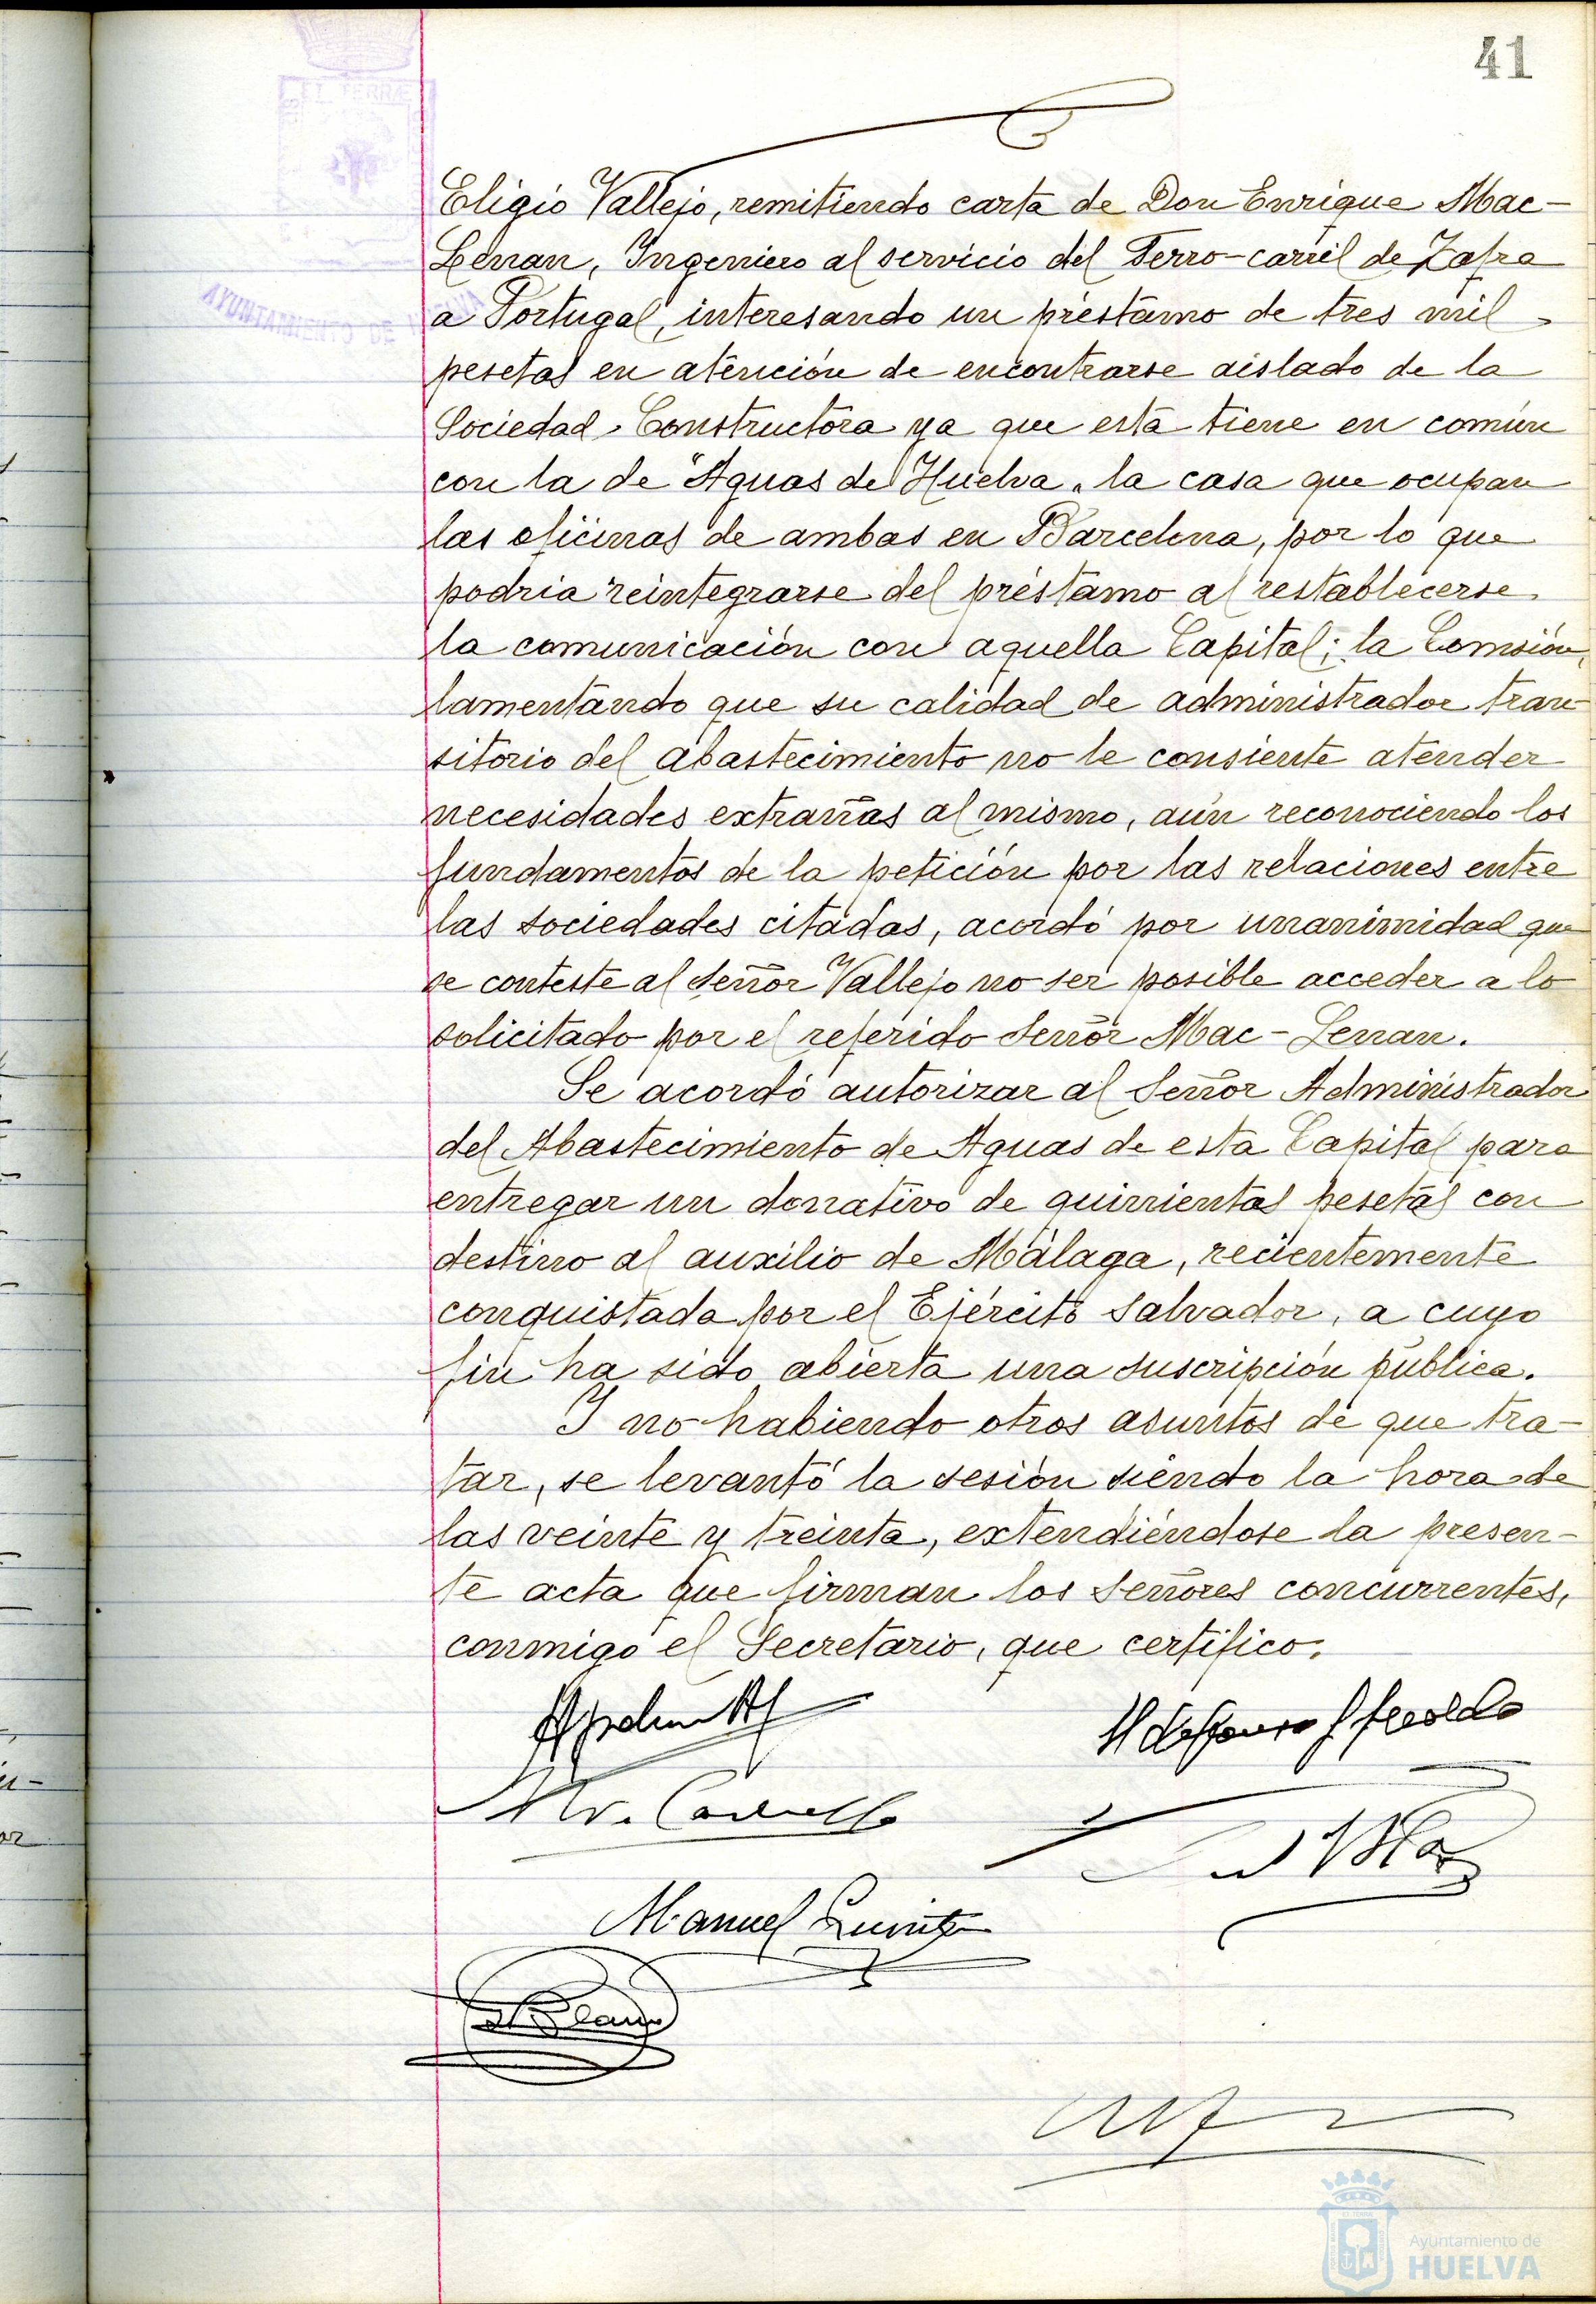 41
Eligio Vallejo, remitiendo carta de Don Enrique Mac-
Lenan, Ingeniero al servicio del Ferro-carril de Zafra
a Portugal, interesando un préstamo de tres mil
pesetas en atención de encontrarse aislado de la
Sociedad Constructora ya que esta tiene en común
con la de "Aguas de Huelva" la casa que ocupan
las oficinas de ambas en Barcelona, por lo que
podria reintegrarse del préstamo al restablecerse
la comunicación con aquella Capital; la Comisión,
lamentando que su calidad de administrador tran-
sitorio del abastecimiento no le consiente atender
necesidades extrañas al mismo, aún reconociendo los
fundamentos de la petición por las relaciones entre
las sociedades citadas, acordó por unanimidad que
se conteste al señor Vallejo no ser posible acceder a lo
solicitado por el referido señor Mac-Lenan.
Se acordó autorizar al Señor Administrador
del Abastecimiento de Aguas de esta Capital para
entregar un donativo de quinientas pesetas con
destino al auxilio de Málaga, recientemente
conquistada por el Ejército Salvador, a cuyo
fin ha sido abierta una suscripción pública.
Y no habiendo otros asuntos de que tra-
tar, se levantó la sesión siendo la hora de
las veinte y treinta, extendiéndose la presen-
te acta que firman los señores concurrentes,
conmigo el Secretario, que certifico.
Manuel
AYUNTAMIENTO DE
Ayuntamiento de
HUELVA